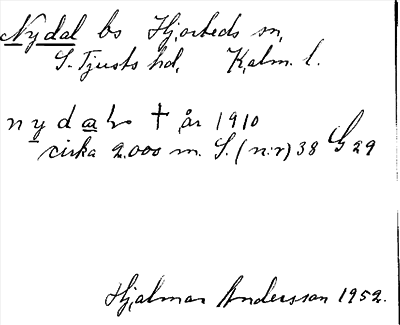 Nydal bs Hjorteds sn,
S. Tjusts hd, Kalm. l.
nydal † år 1910
cirka 2.000 m. S. (n:r) 38 G 29
Hjalmar Andersson 1952.